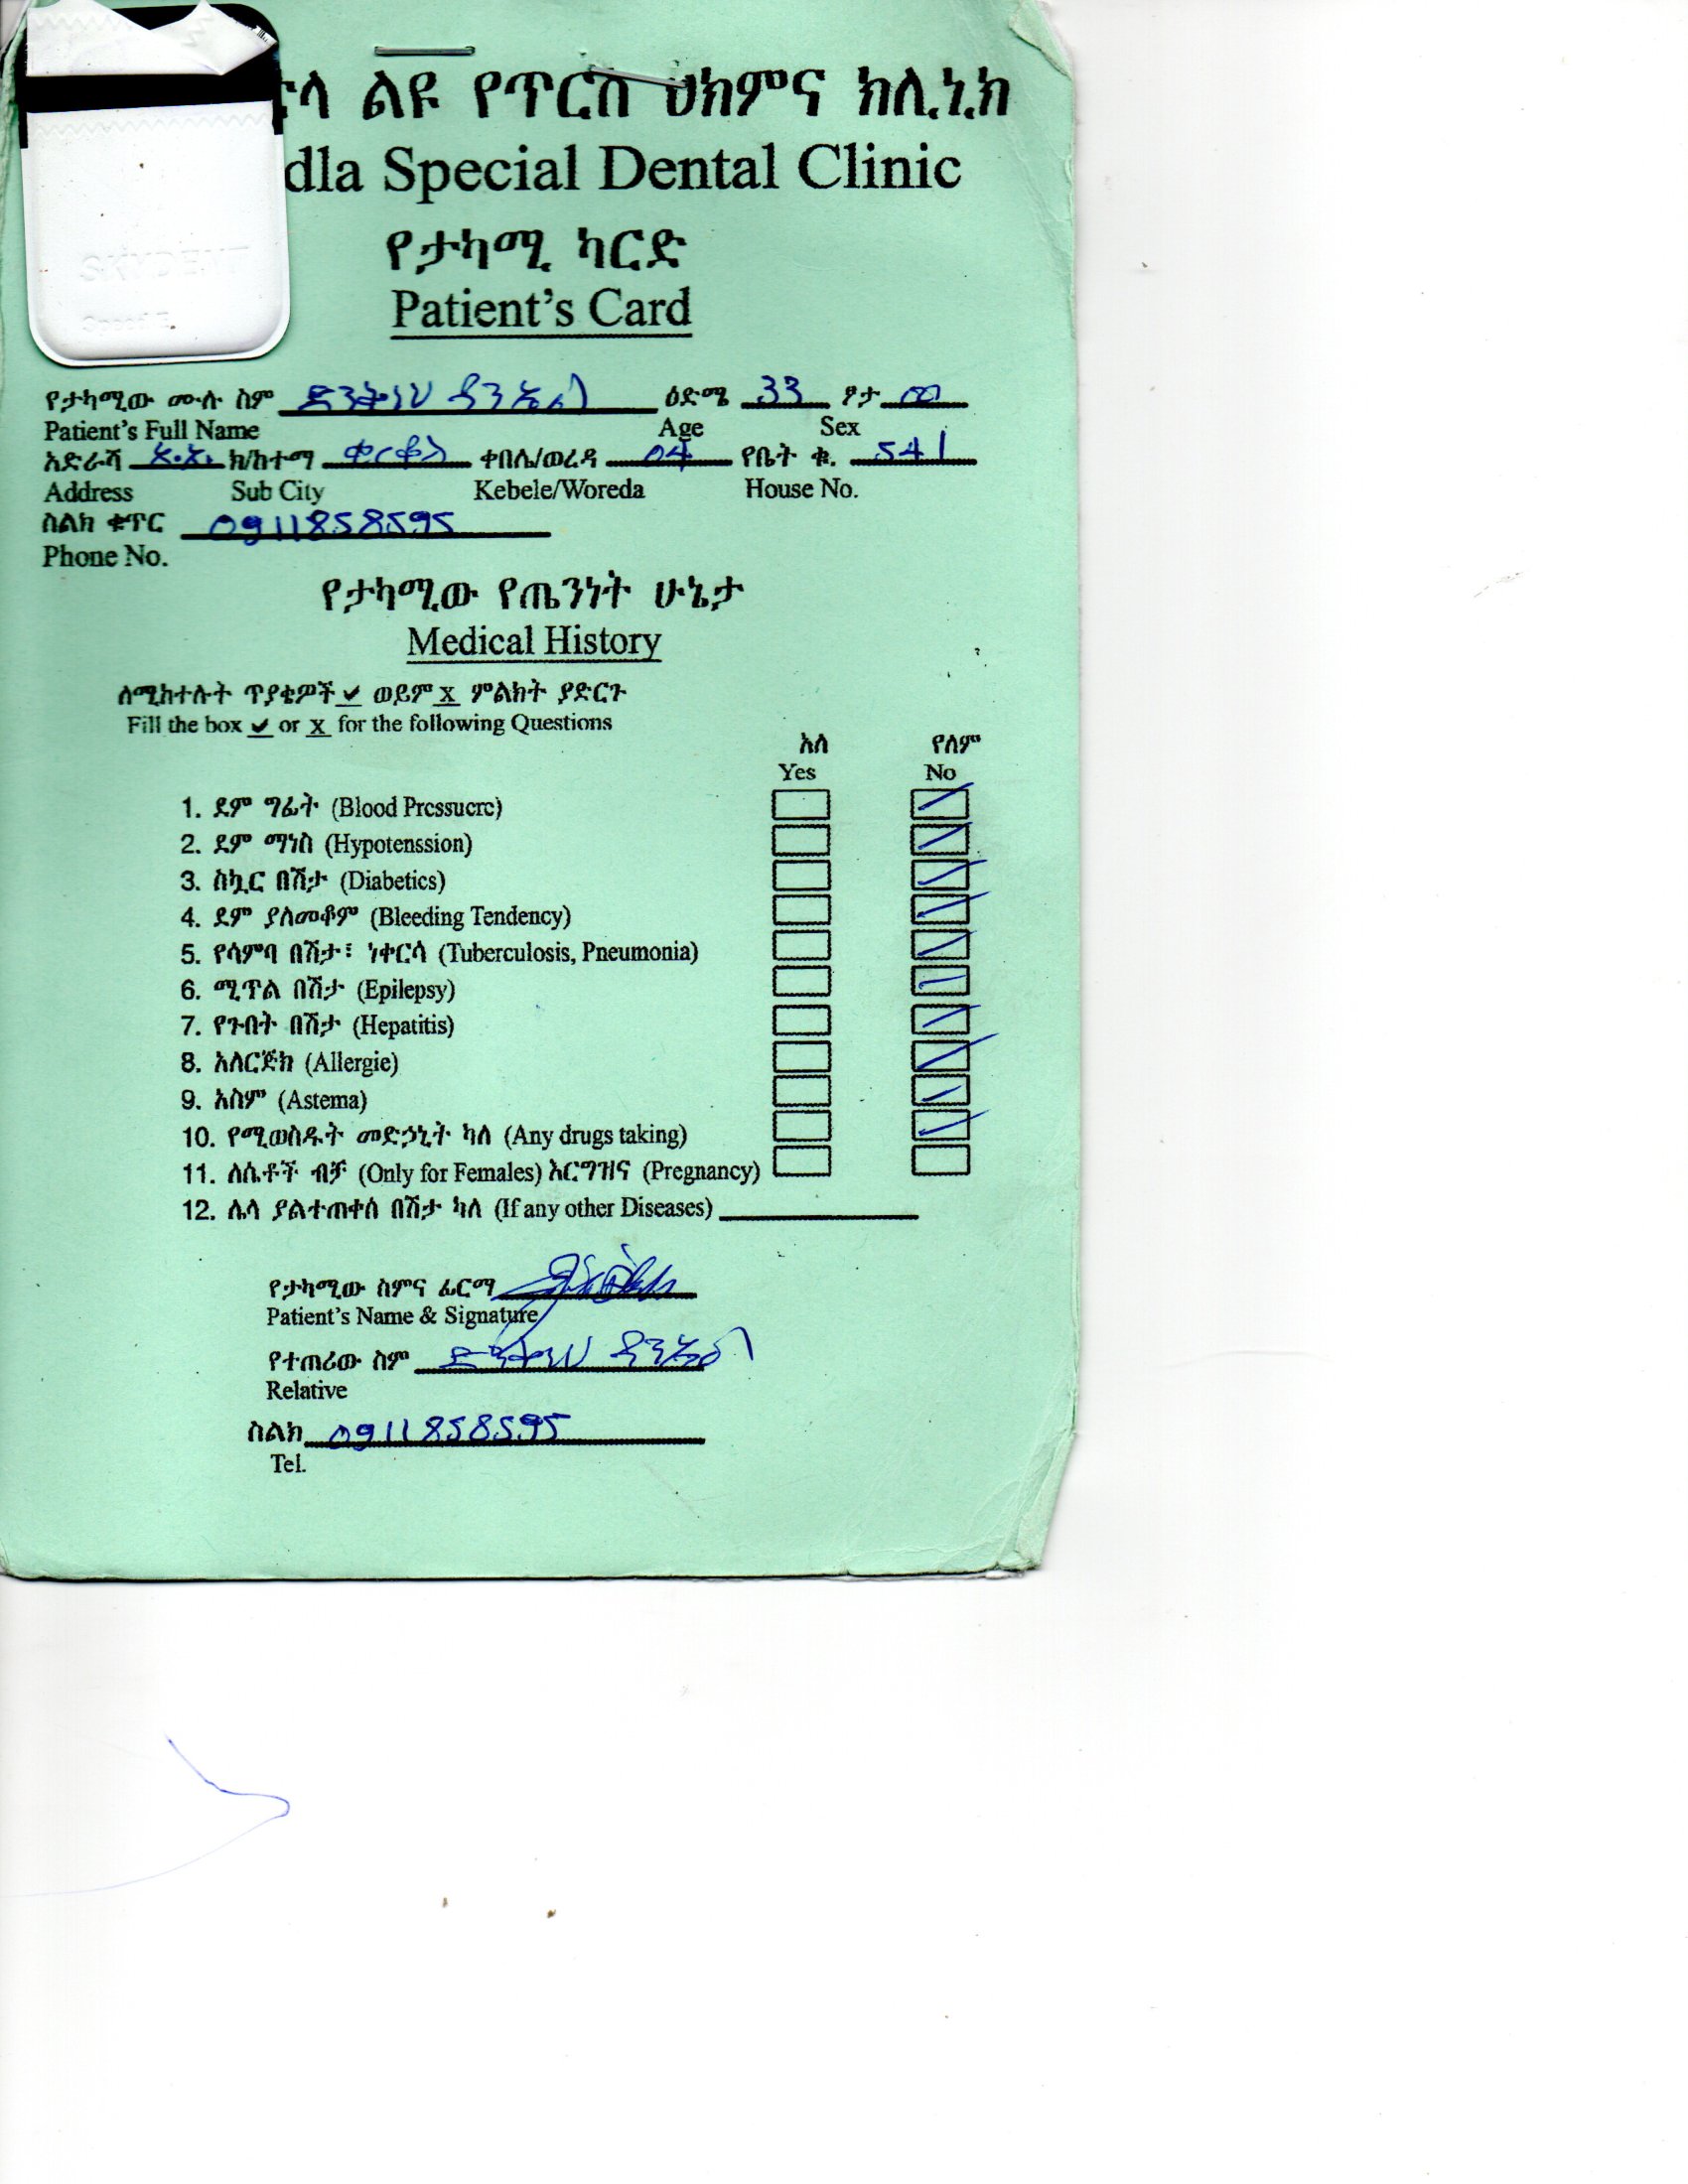 ልዩ የጥርስ ህክምና ክሊኒክ
dla Special Dental Clinic
የታካሚ ካርድ
Patient's Card
SKYDENT
የታካሚው ሙሉ ስም ዳንኤል ዕድሜ 33 ፆታ ወ
Patient's Full Name Age Sex
አድራሻ አ.አ. ክ/ከተማ ቂርቆስ ቀበሌ/ወረዳ 04 የቤት ቁ. 541
Address Sub City Kebele/Woreda House No.
ስልክ ቁጥር 0911858595
Phone No.
የታካሚው የጤንነት ሁኔታ
Medical History
ለሚከተሉት ጥያቄዎች ✓ ወይም X ምልክት ያድርጉ
Fill the box ✓ or X for the following Questions
አለ የለም
Yes No
1. ደም ግፊት (Blood Pressuere)
2. ደም ማነስ (Hypotenssion)
3. ስኳር በሽታ (Diabetics)
4. ደም ያለመቆም (Bleeding Tendency)
5. የሳምባ በሽታ፣ ነቀርሳ (Tuberculosis, Pneumonia)
6. ሚጥል በሽታ (Epilepsy)
7. የጉበት በሽታ (Hepatitis)
8. አለርጅክ (Allergie)
9. አስም (Astema)
10. የሚወስዱት መድኃኒት ካለ (Any drugs taking)
11. ለሴቶች ብቻ (Only for Females) እርግዝና (Pregnancy)
12. ሌላ ያልተጠቀሰ በሽታ ካለ (If any other Diseases)
የታካሚው ስምና ፊርማ
Patient's Name & Signature
የተጠሪው ስም ዳንኤል
Relative
ስልክ 0911858595
Tel.